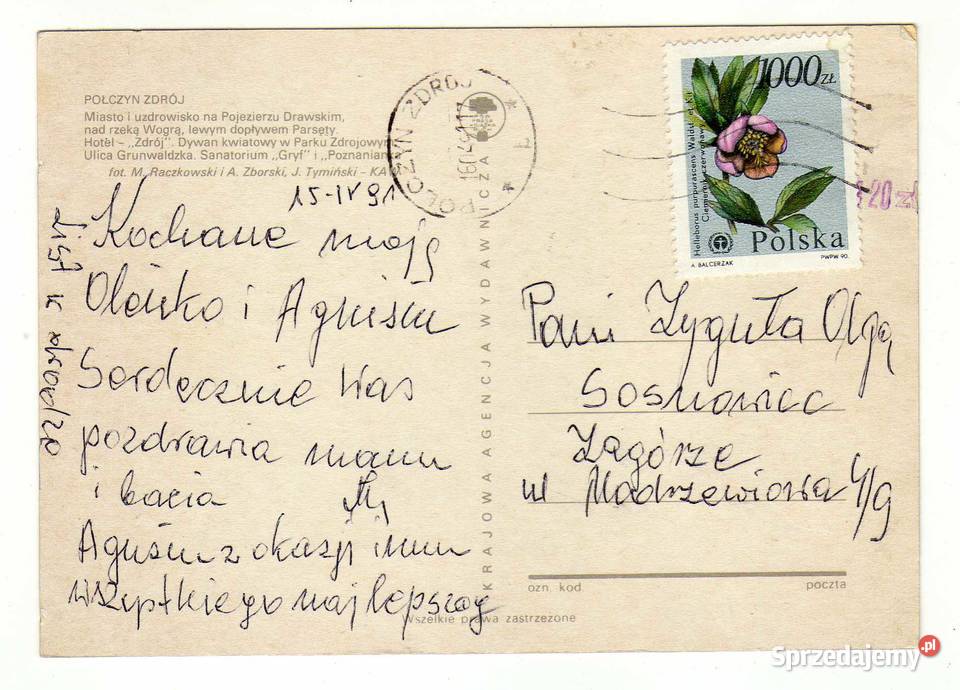 POŁCZYN ZDRÓJ
Miasto i uzdrowisko na Pojezierzu Drawskim,
nad rzeką Wogrą, lewym dopływem Parsęty.
Hotel – „Zdrój”. Dywan kwiatowy w Parku Zdrojowym
Ulica Grunwaldzka. Sanatorium „Gryf” i „Poznanian
fot. M. Raczkowski i A. Zborski, J. Tymiński – KAW
15-IV 91
Kochane moje
Oleńko i Agnisiu
Serdecznie Was
pozdrawia mama
i bacia
Agusiu z okazji imun
wszystkiego najlepszego
list w drodze
KRAJOWA AGENCJA WYDAWNICZA
POŁCZYN ZDRÓJ
1000 ZŁ
Helleborus purpurascens Waldst. et Kit.
Ciemiernik czerwonawy
Polska
A. BALCERZAK
PWPW 90.
20 zł
Pani Zyguła Olga
Sosnowiec
Zagórze
ul Modrzewiowa 4/9
ozn. kod.
poczta
Wszelkie prawa zastrzeżone
Sprzedajemy.pl